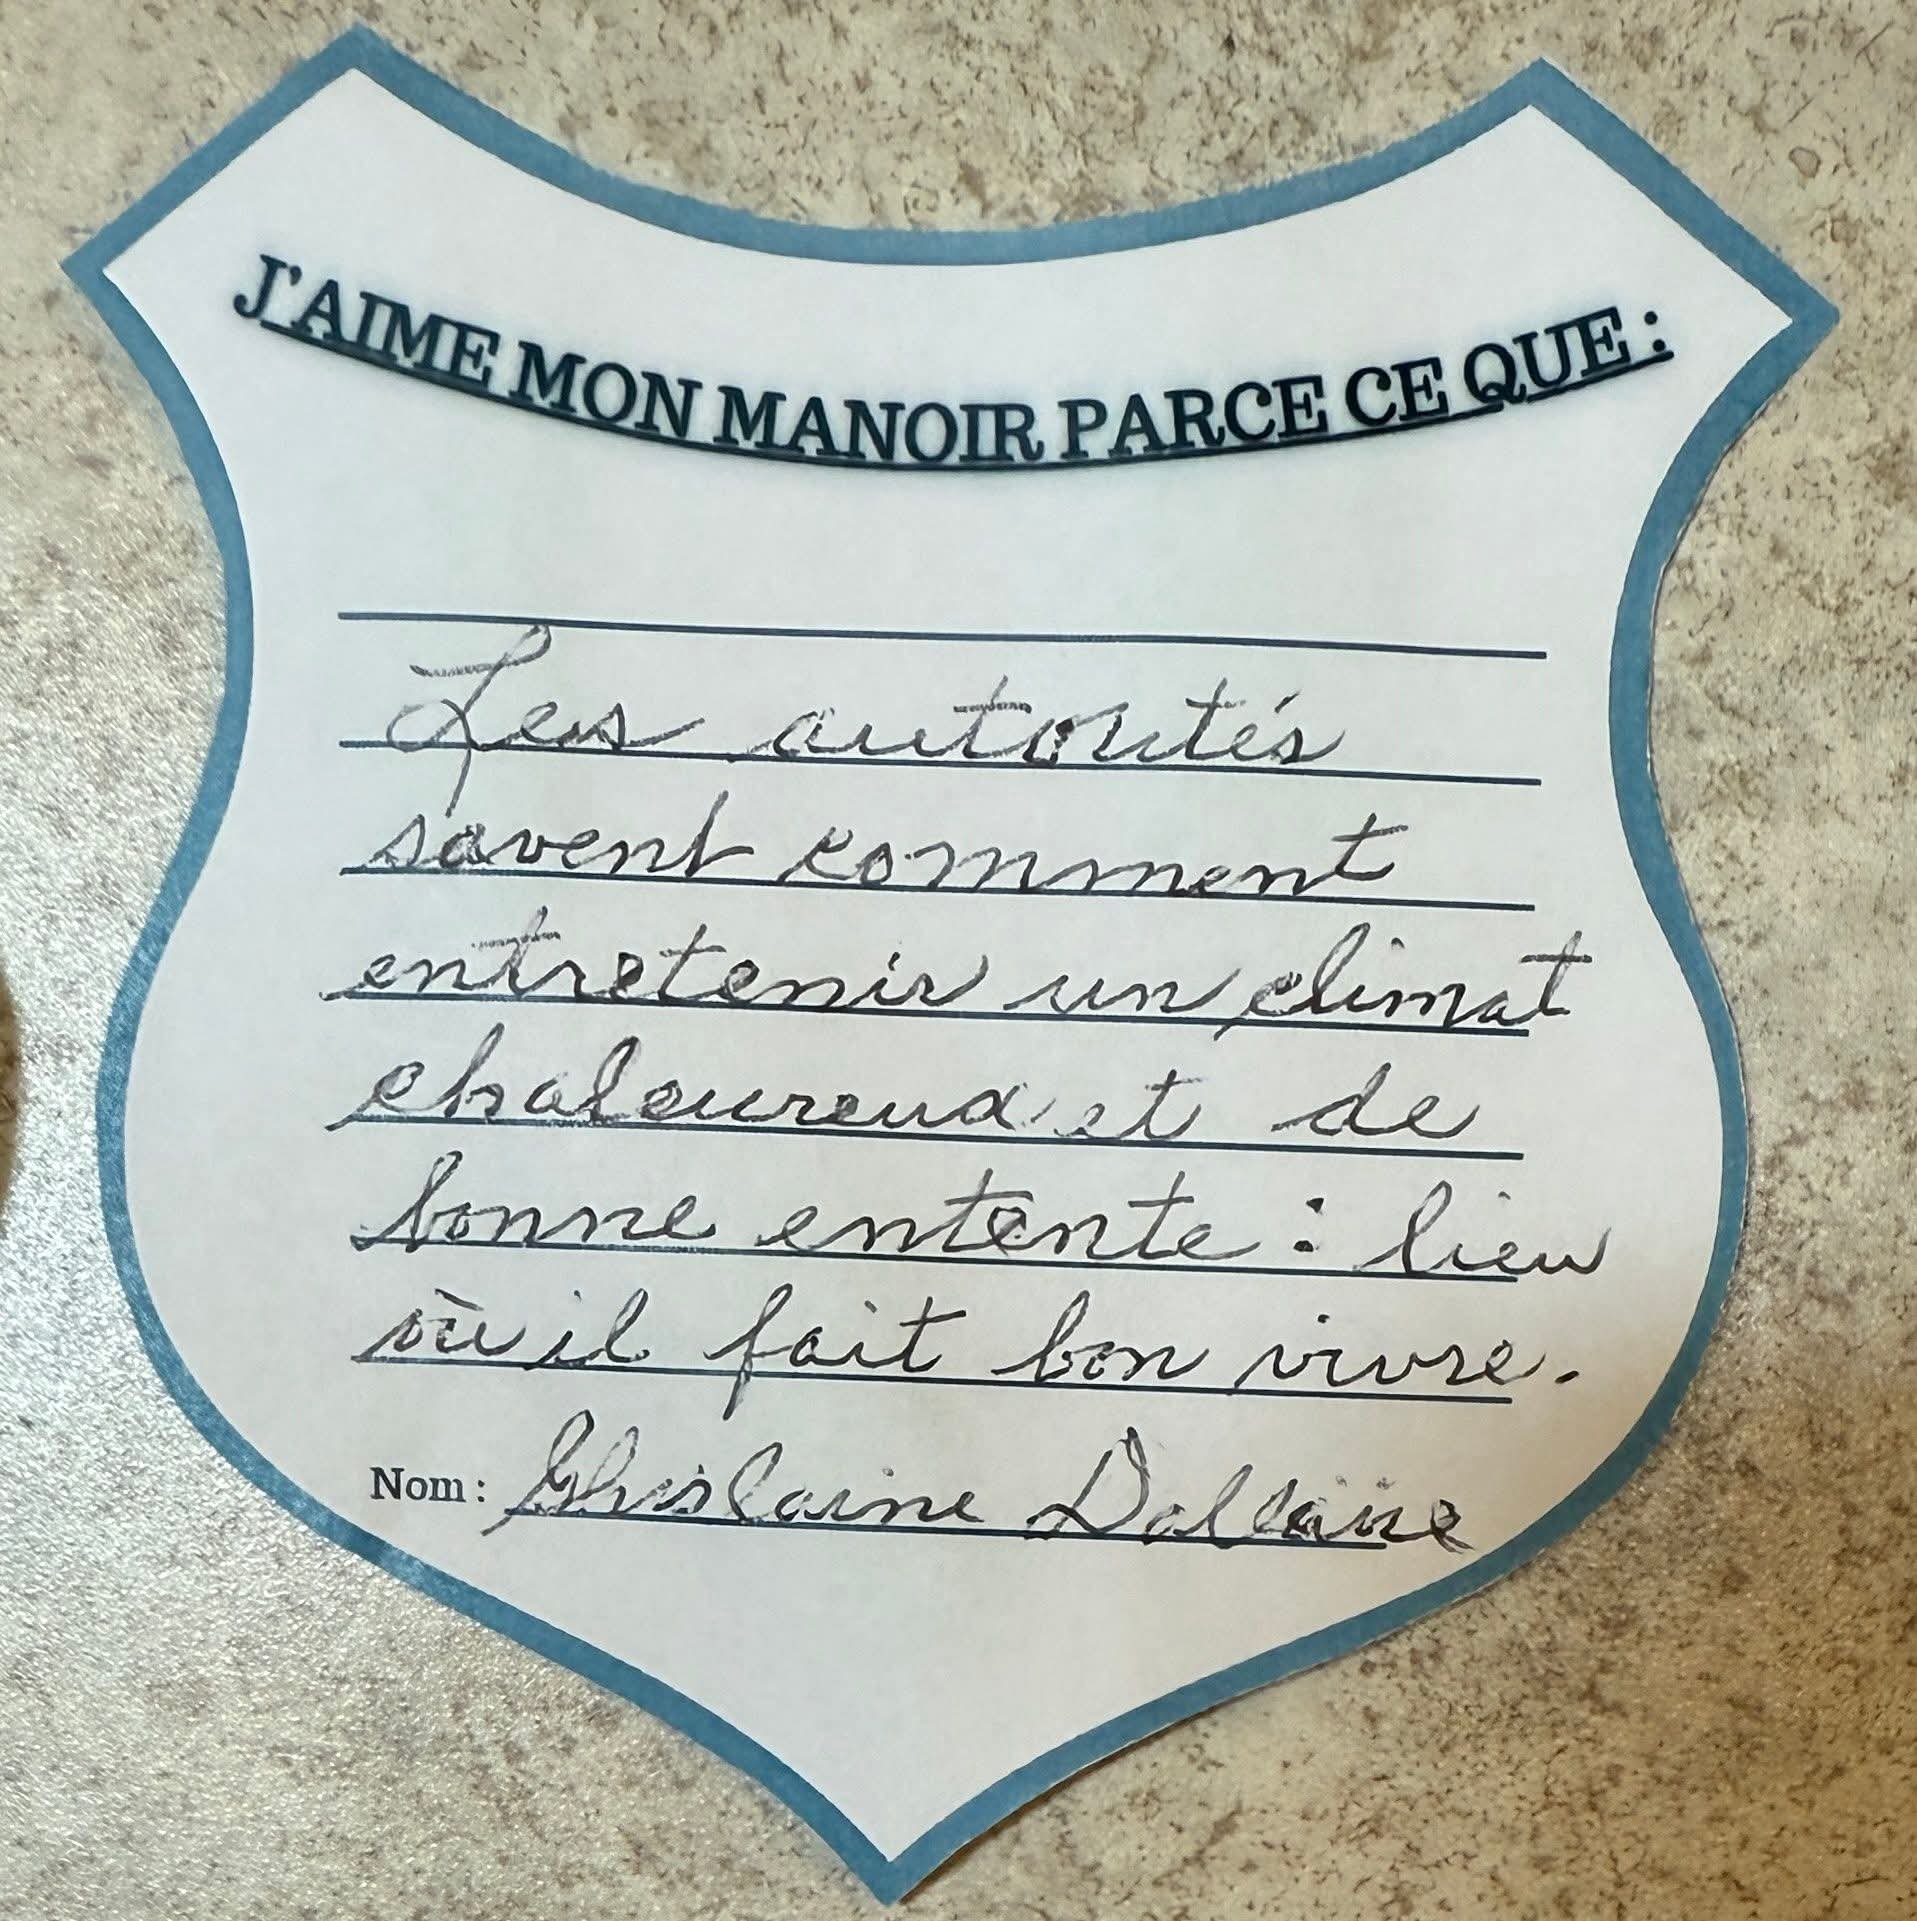 J'AIME MON MANOIR PARCE CE QUE :
Les autorités
savent comment
entretenir un climat
chaleureux et de
bonne entente : lieu
où il fait bon vivre.
Nom : Ghislaine